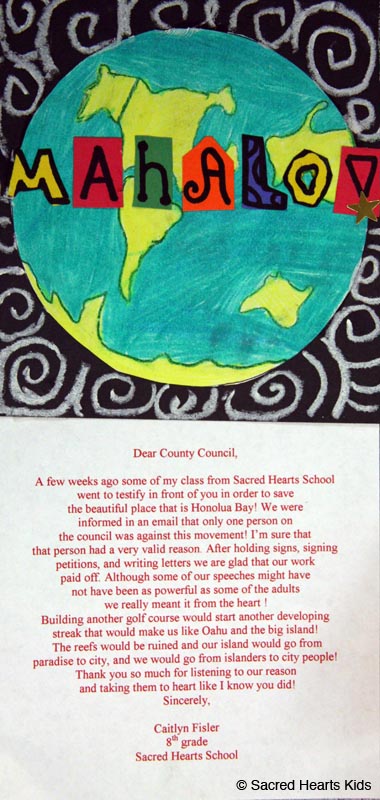 MAHALO!
Dear County Council,
A few weeks ago some of my class from Sacred Hearts School
went to testify in front of you in order to save
the beautiful place that is Honolua Bay! We were
informed in an email that only one person on
the council was against this movement! I'm sure that
that person had a very valid reason. After holding signs, signing
petitions, and writing letters we are glad that our work
paid off. Although some of our speeches might have
not have been as powerful as some of the adults
we really meant it from the heart !
Building another golf course would start another developing
streak that would make us like Oahu and the big island!
The reefs would be ruined and our island would go from
paradise to city, and we would go from islanders to city people!
Thank you so much for listening to our reason
and taking them to heart like I know you did!
Sincerely,
Caitlyn Fisler
8th grade
Sacred Hearts School
© Sacred Hearts Kids